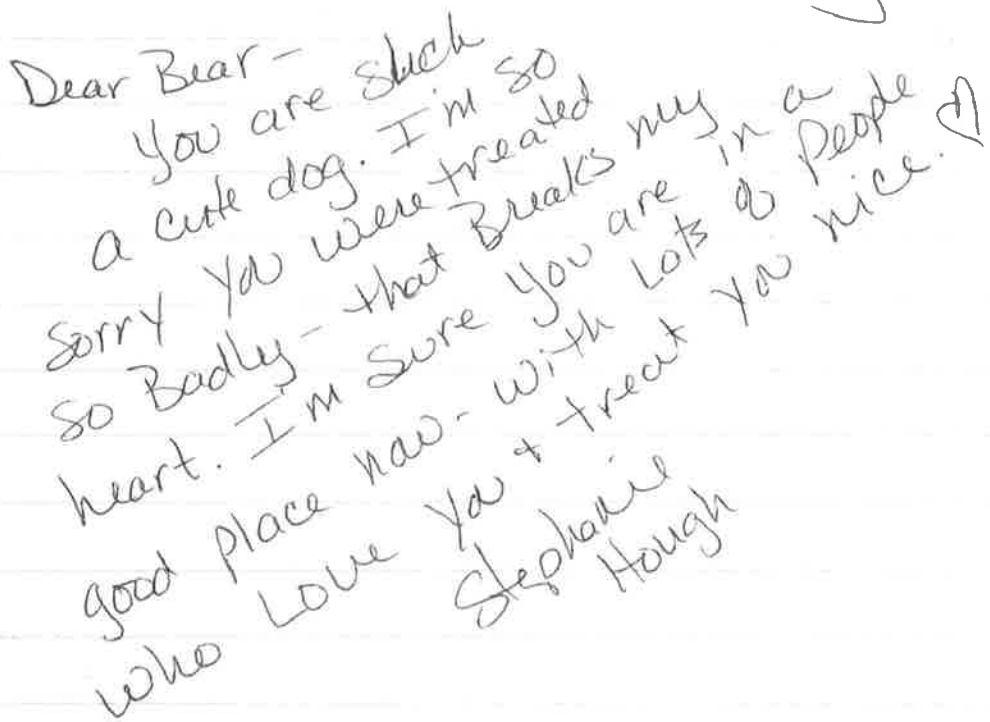 Dear Bear-
You are such
a cute dog. I'm so
sorry you were treated
so Badly - that Breaks my
heart. I'm sure you are in a
good place now - with Lots of People
who Love you + treat you nice. ♡
Stephanie
Hough